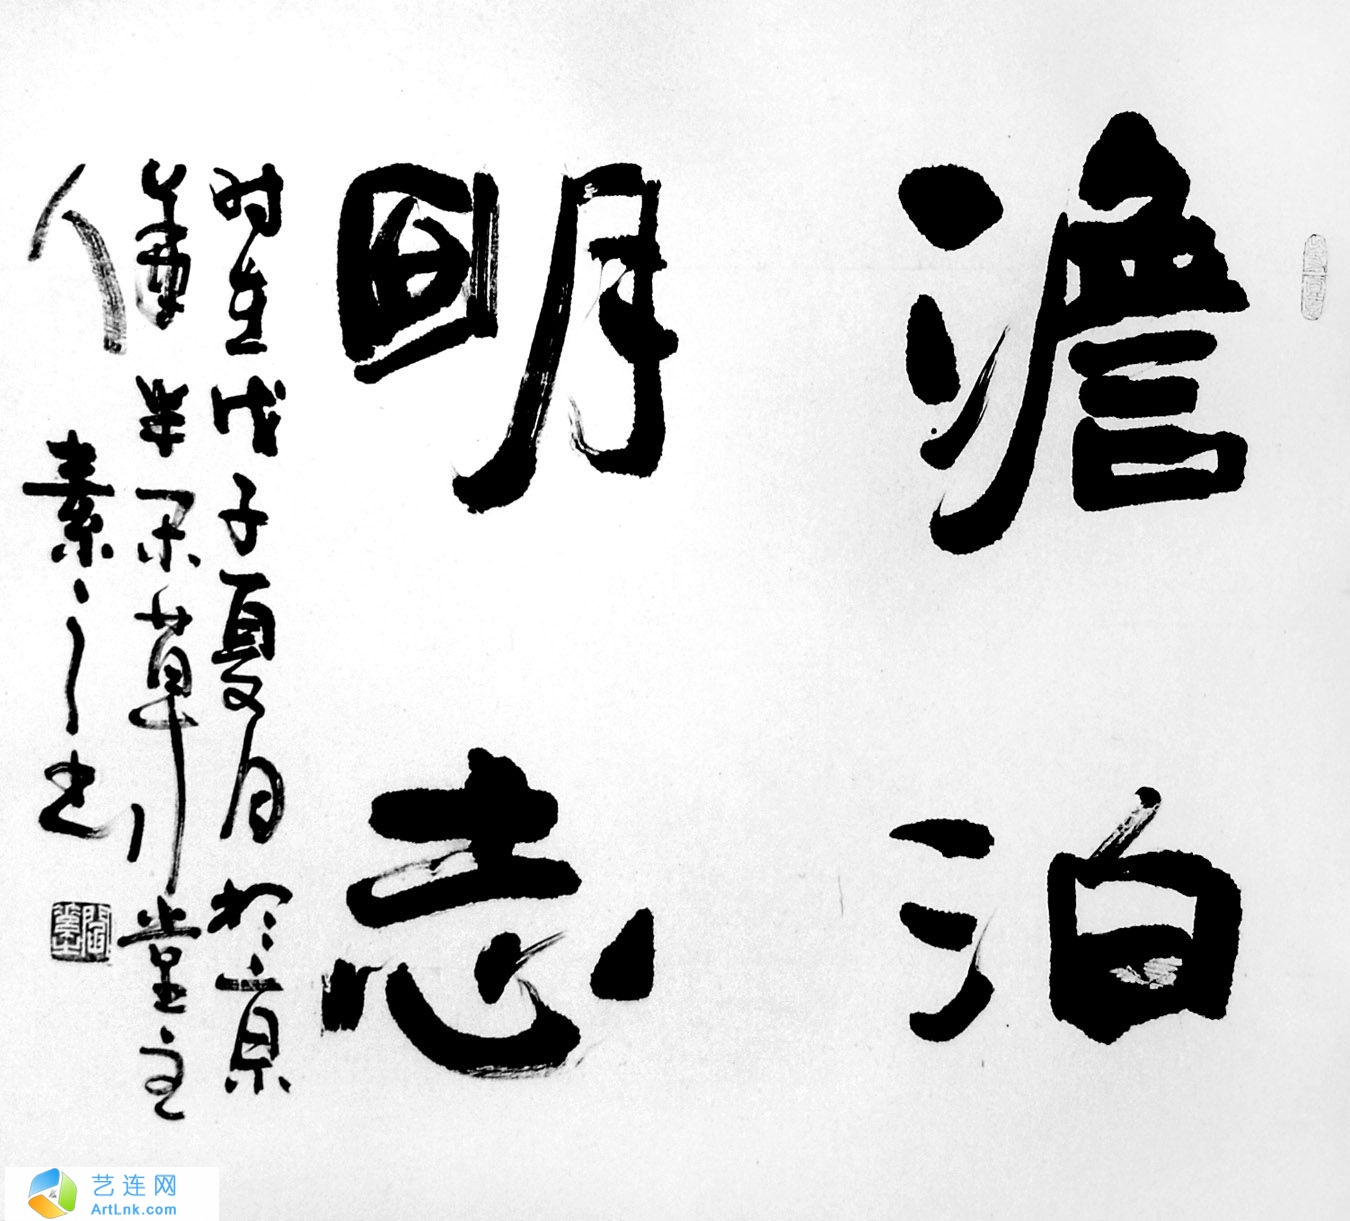 澹泊
明志
时在戊子夏月於京
半闲草堂主
人素之书
艺连网
ArtLnk.com